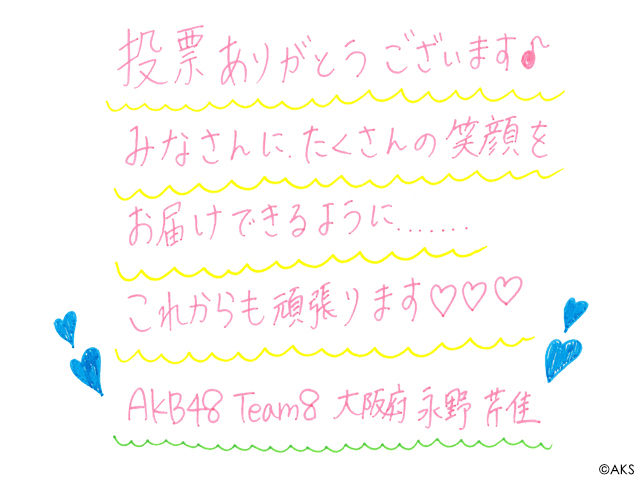 投票ありがとうございます♪
みなさんに、たくさんの笑顔を
お届けできるように.......
これからも頑張ります♡♡♡
AKB48 Team8 大阪府 永野 芹佳
©AKS